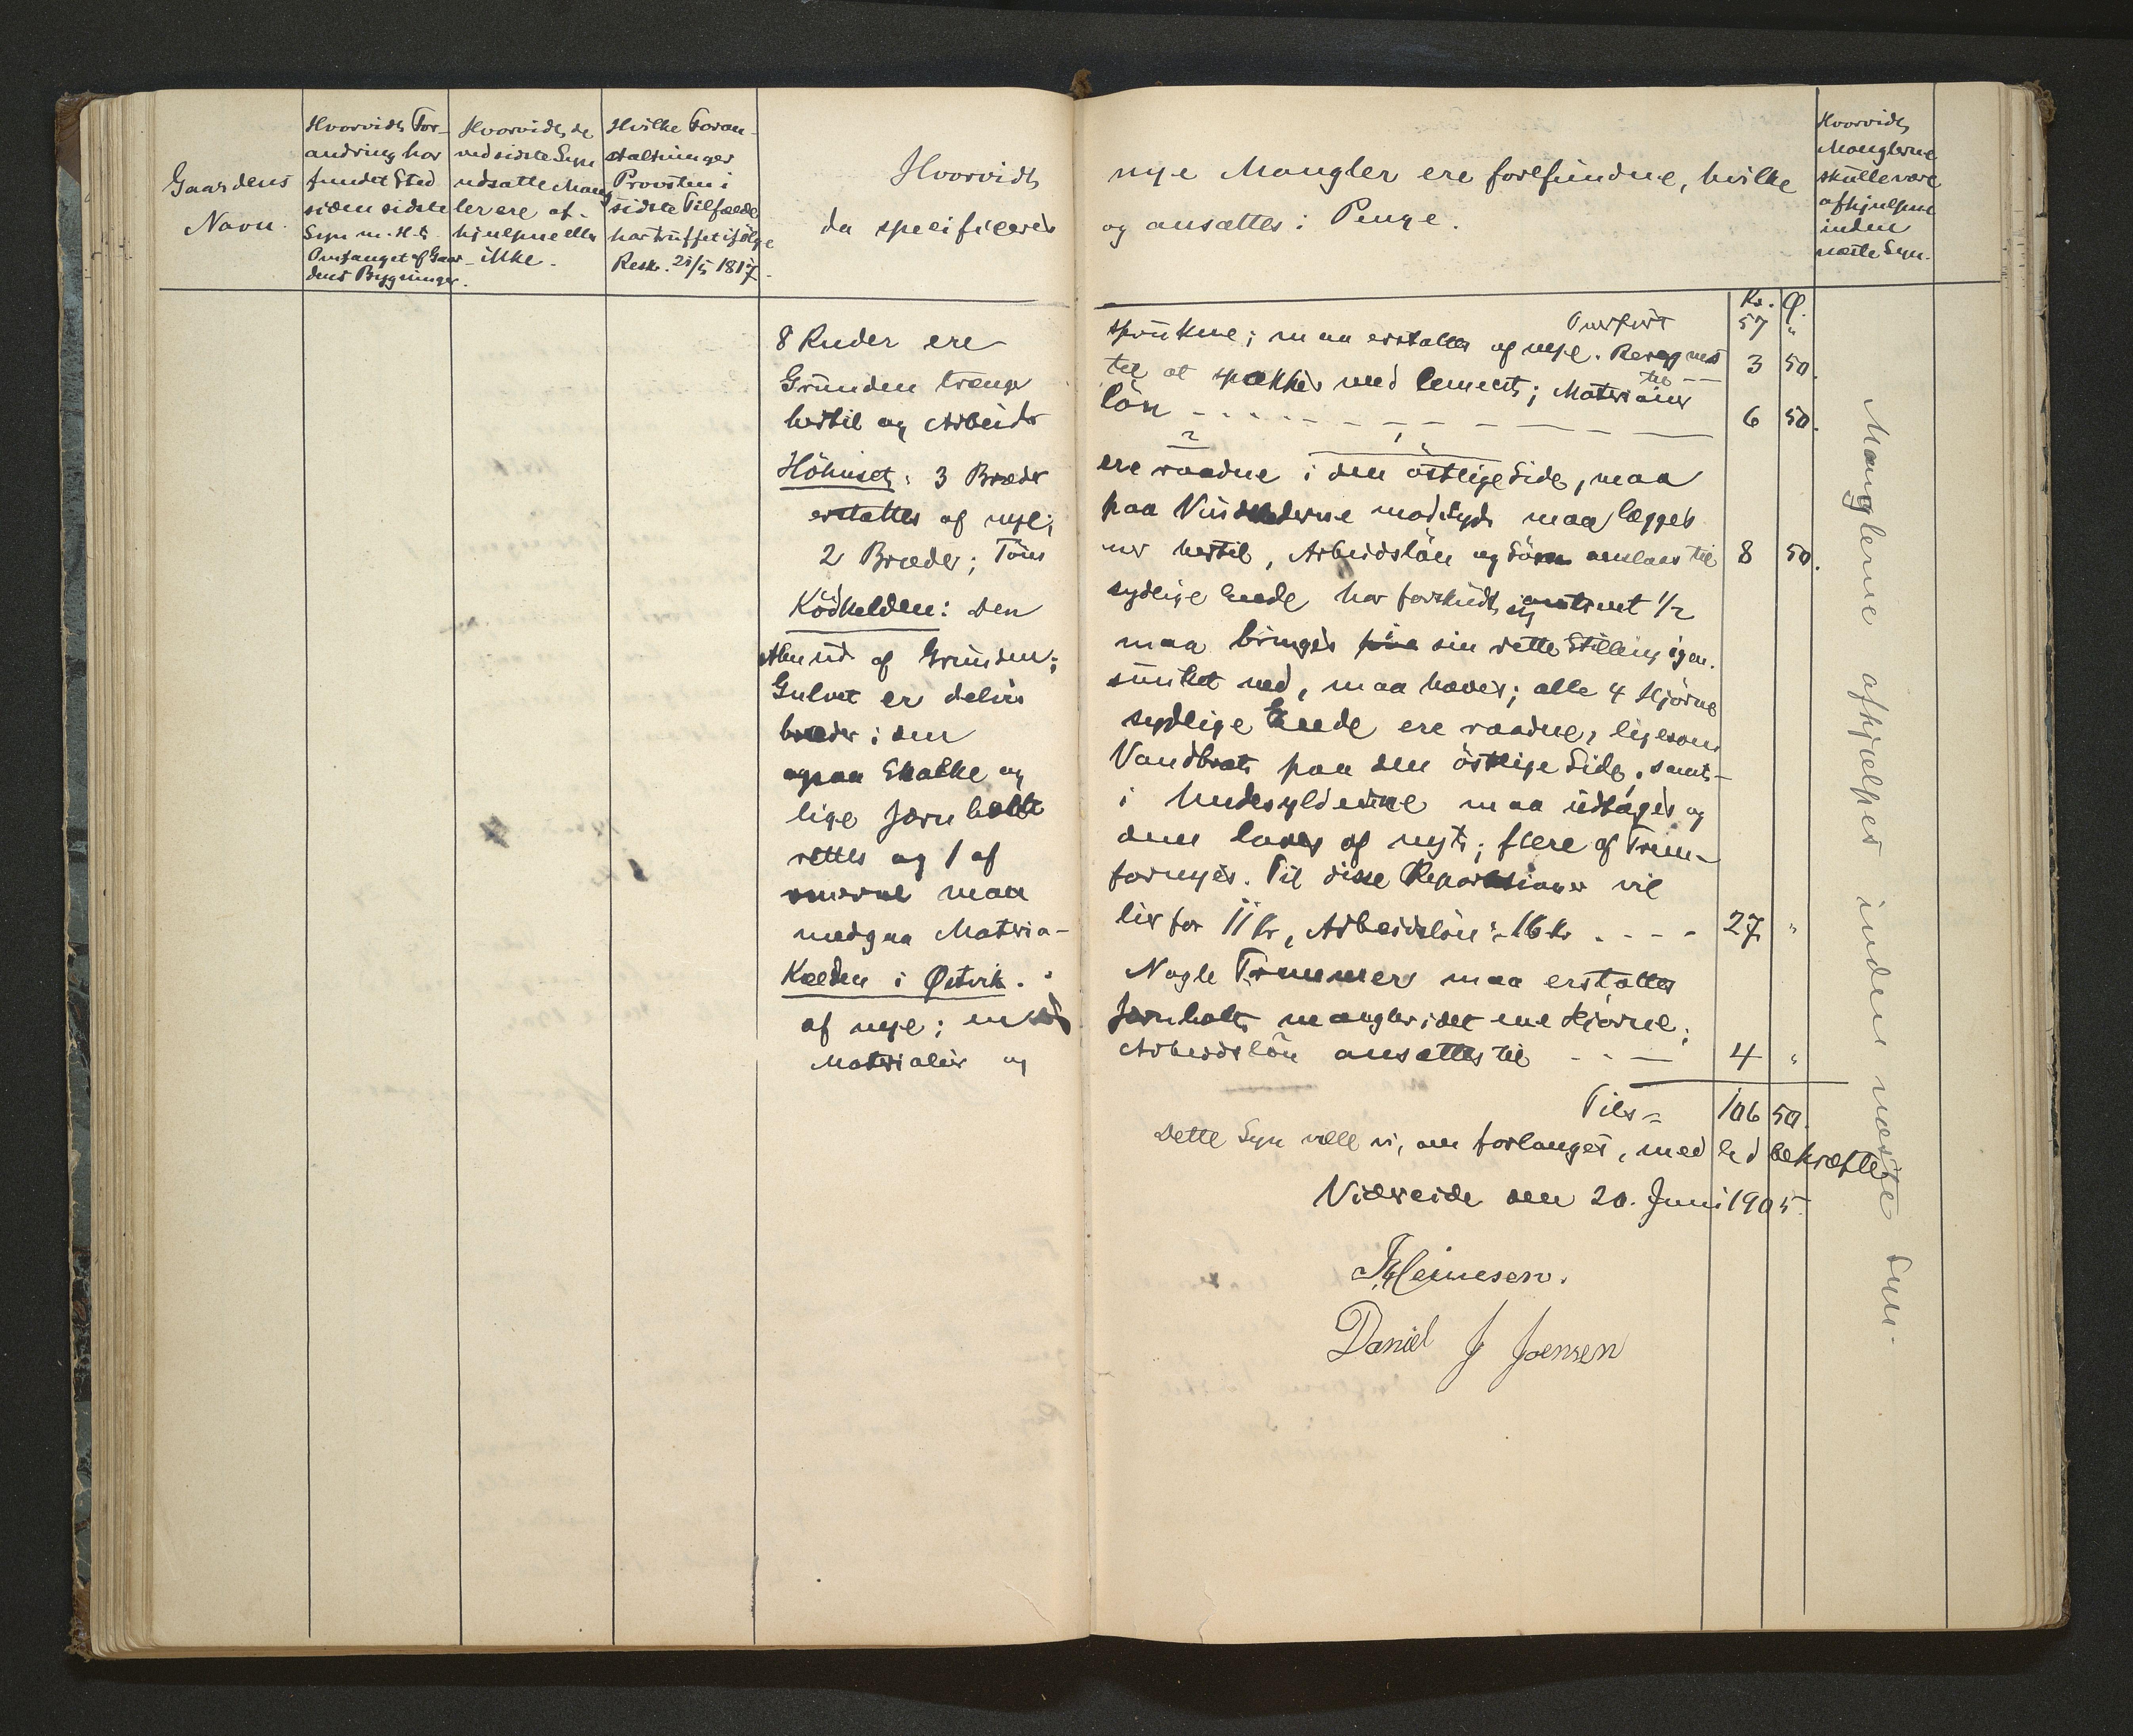 Gaardens
Navn.
Hvorvidt For-
andring har
fundet Sted
siden sidste
Syn m.H.t.
Omfanget af Gaar-
dens Bygninger.
Hvorvidt de
ved sidste Syn
udsatte Mang
ler ere af-
hjulpne eller
ikke.
Hvilke Foran-
staltninger
Provsten i
sidste Tilfælde
har truffet ifølge
Resk. 21/5 1817.
Hvorvidt nye Mangler ere forefundne, hvilke
da specificeres og ansættes i Penge.
Hvorvidt
Manglerne
skulle være
afhjulpne
inden
næste Syn.
Kr. Ø.
Overført 57 "
8 Ruder ere sprukne; maa erstattes af nye. Beregnes til -- 3 50.
Grunden trænge til at spækkes med Cement; Materialier
hertil og Arbeids løn - - - - 6 50.
Höhuset: 3 Bræder ere raadne i den østlige Side, maa
erstattes af nye; paa Vindskederne mod Syd maa lægges
2 Bræder; Töm mer hertil, Arbeidslön og Söm anslaas til 8 50.
Ködkelden: Den sydlige Ende har forskudt sig omtrent 1/2
Alen ud af Grunden; maa bringes i sin rette Stilling igen.
Gulvet er delvis sunket ned, maa hæves; alle 4 Hjørne
bræder i den sydlige Ende ere raadne, ligesom
ogsaa Skalke og Vandbræt paa den østlige Side, samt-
lige Jernbolte i Undersylderne maa udtages og
rettes og 1 af dem laves af nyt; flere af Trem-
merne maa fornyes. Til disse Reparationer vil
medgaa Materia- lier for 11 Kr, Arbeidslön: 16 Kr. - - - 27 "
Kælden i Østvik. Nogle Tremmer maa erstattes
af nye; en Jernbolt mangler i det ene Hjørne;
Materialier og Arbeidslön ansættes til - - - 4 "
Tils = 106 50.
Dette Syn ville vi, om forlanges, med Ed bekræfte.
Viderejde den 20. Juni 1905.
Heinesen.
Daniel J Joensen
Manglerne afhjælpes inden næste Syn.